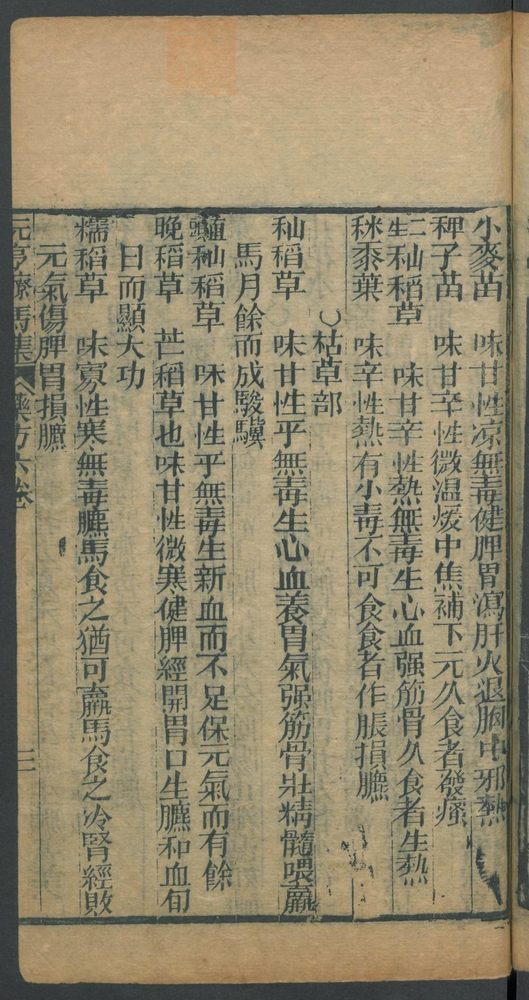 小麥苗　味甘性凉無毒健脾胃瀉肝火退胸中邪熱
稗子苗　味甘辛性微温煖中焦補下元久食者發瘙
二生秈稻草　味甘辛性熱無毒生心血强筋骨久食者生熱
秫黍葉　味辛性熱有小毒不可食食者作脹損臕
枯草部
秈稻草　味甘性平無毒生心血養胃氣强筋骨壯精髓喂羸
馬月餘而成駿驥
秈稻草　味甘性平無毒生新血而不足保元氣而有餘
晚稻草　芒稻草也味甘性微寒健脾經開胃口生臕和血旬
日而顯大功
糯稻草　味寡性寒無毒臕馬食之猶可羸馬食之冷腎經敗
元氣傷脾胃損臕
元亨療馬集　藥方六卷　二